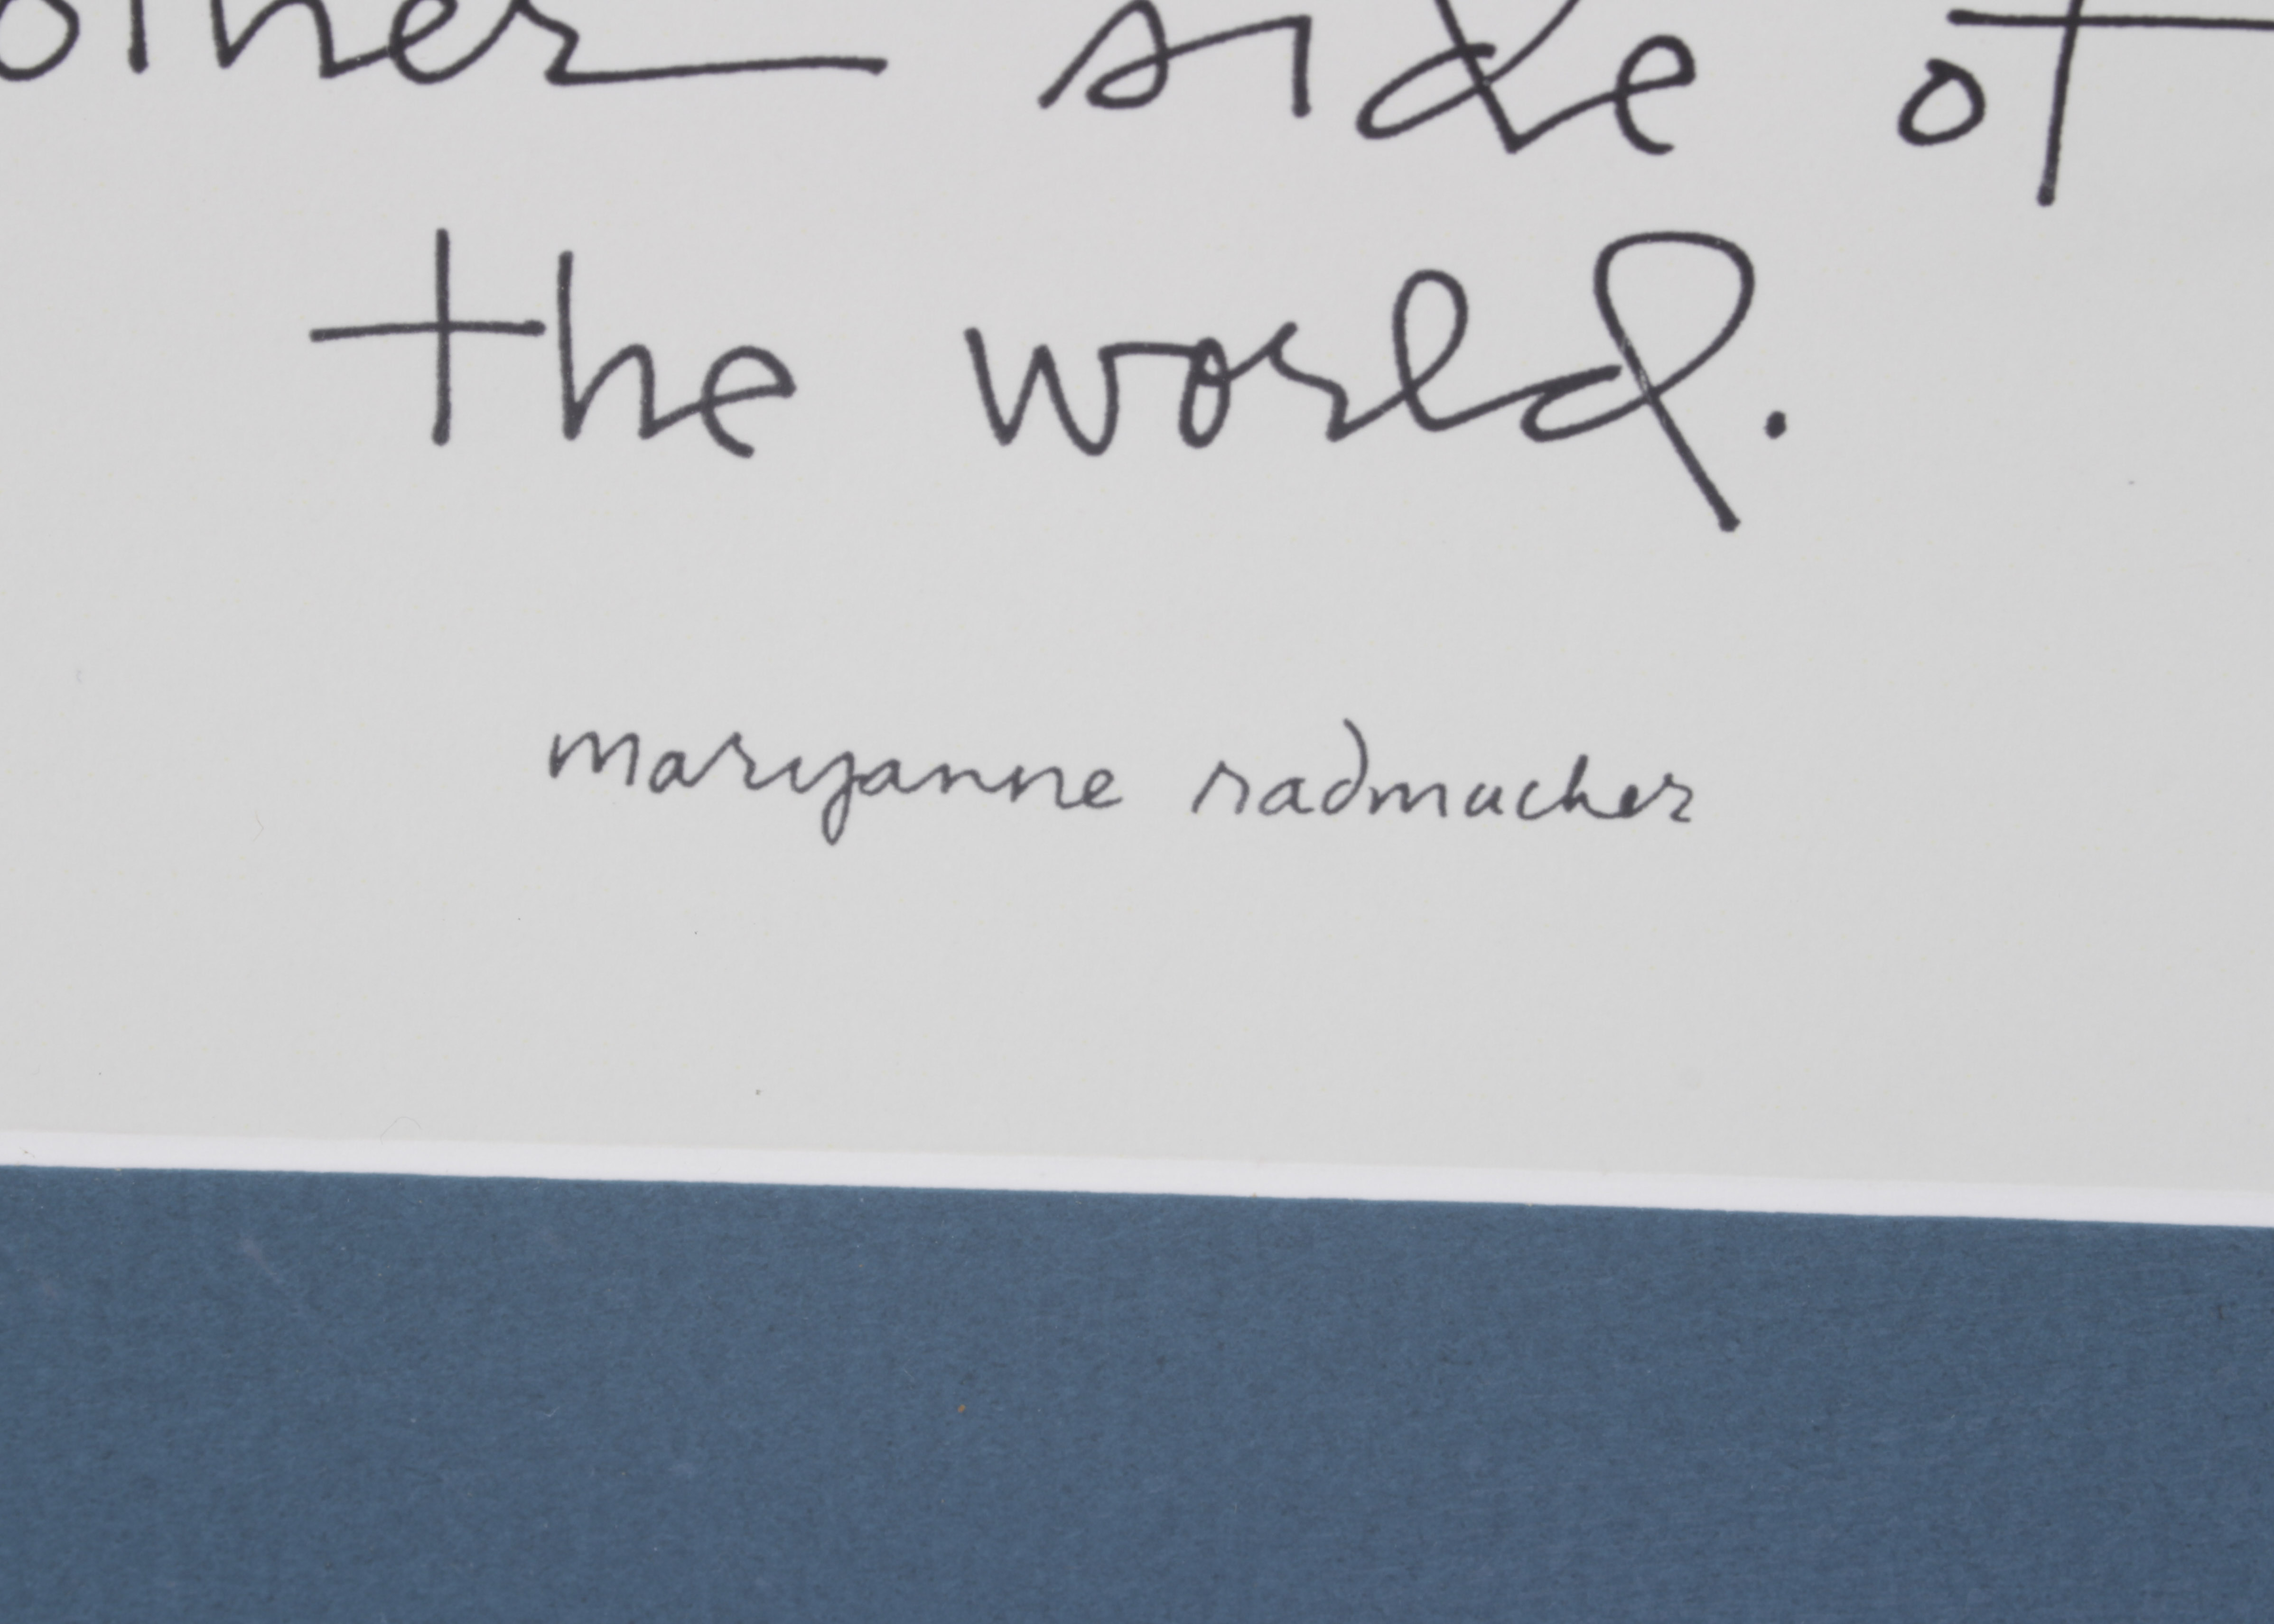 other side of
the world.
maryanne radmacher